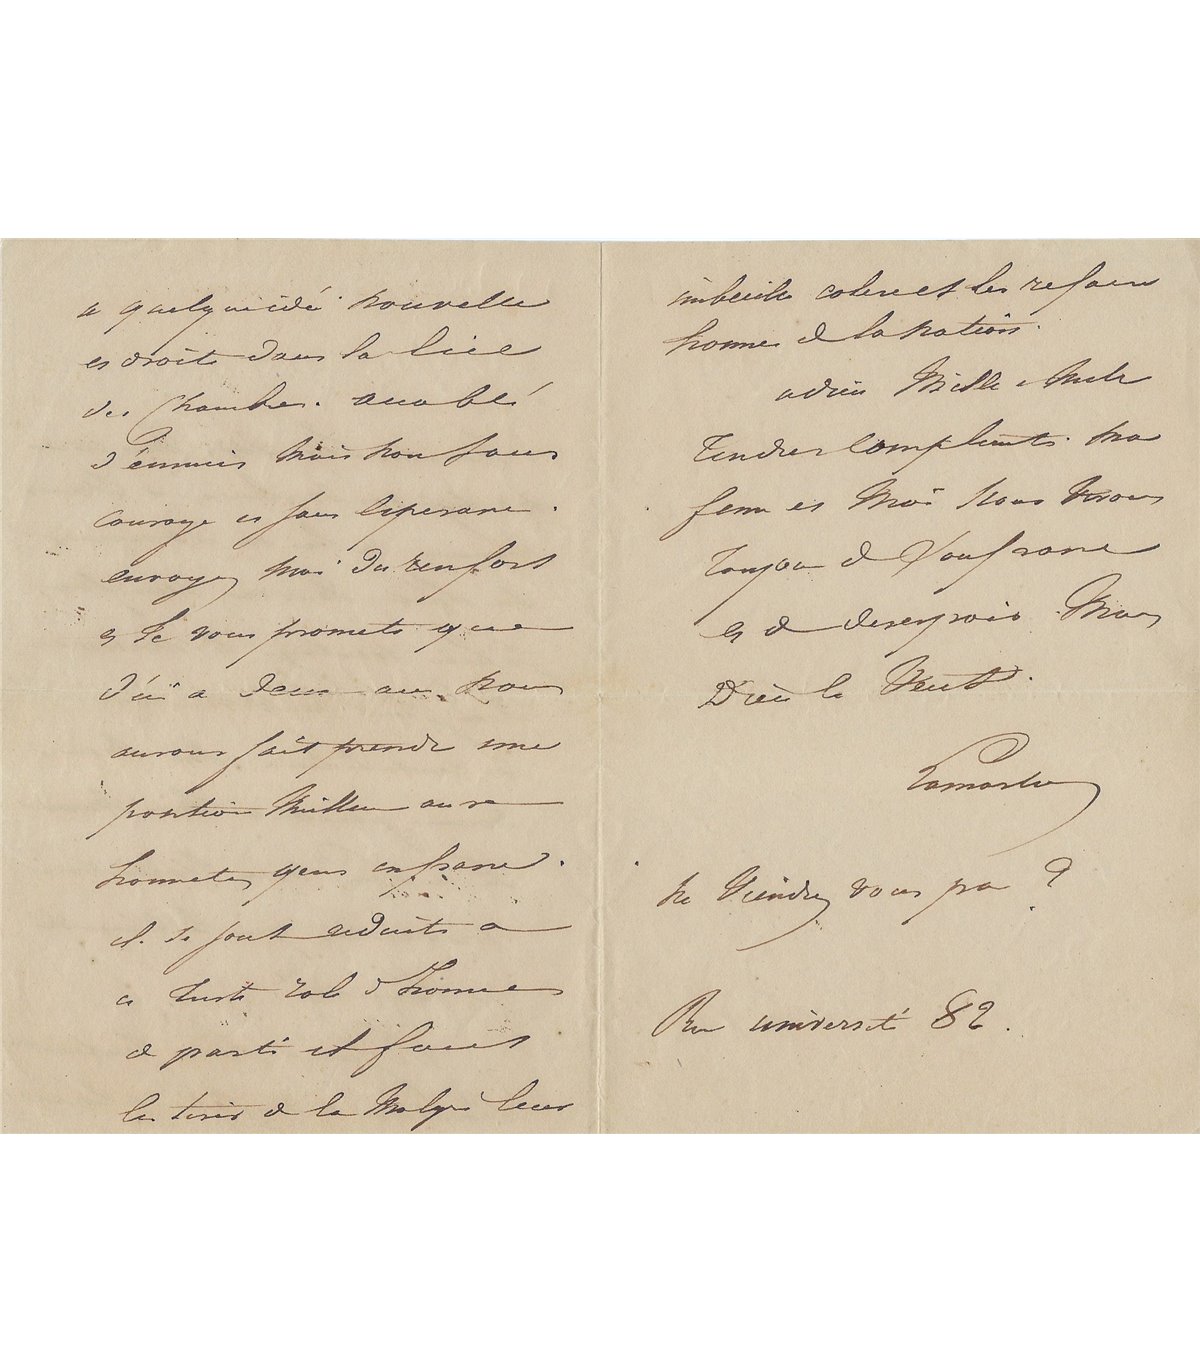 a quelque idée nouvelle
et droite dans la lice
des Chambres. accablé
d'ennuis mais non sans
courage et sans esperance.
envoyez moi du renfort
et je vous promets que
d'ici a deux ans nous
aurons fait prendre une
position meilleure aux
honnetes gens en france.
ils se sont reduits a
ce triste role d'hommes
de parti il faut
les tirer de la malgré leur
imbecile colere et les refaire
hommes de la nation.
adieu Mille et Mille
tendres compliments. ma
femme et moi nous vivons
toujours de souffrance
et de desespoir. Mais
Dieu le veut.
Lamartine
ne viendrez vous pas ?
Rue université 82.